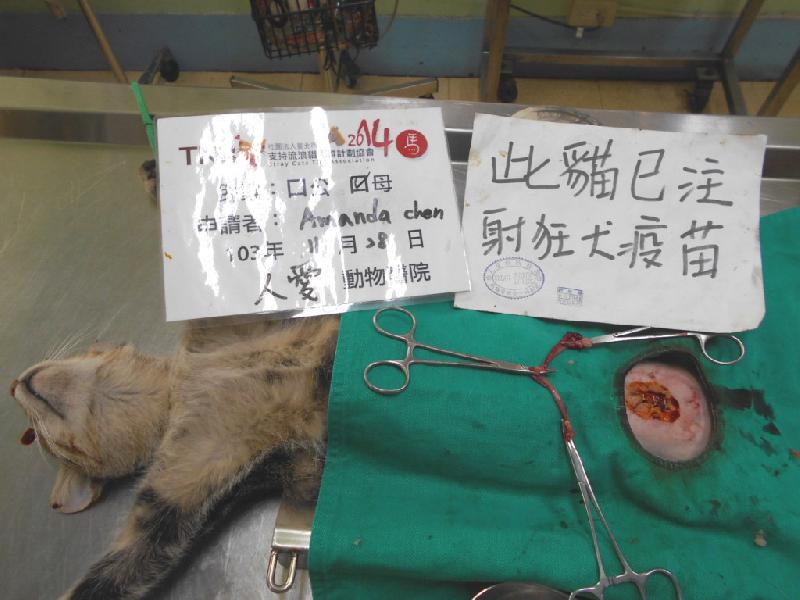 2014
支持流浪貓
計劃協會
Stray Cats
Association
馬
:口公 口母
申請者: Amanda chen
103年 11月28日
人愛 動物醫院
此貓已注
射狂犬疫苗